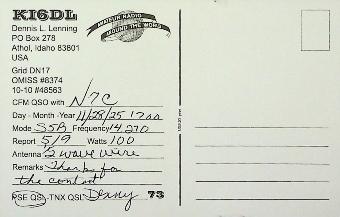 KI6DL
AMATEUR RADIO
AROUND THE WORLD
Dennis L. Lenning
PO Box 278
Athol, Idaho 83801
USA
Grid DN17
OMISS #8374
10-10 #48563
CFM QSO with N7C
Day - Month - Year 11/28/25 1700
Mode SSB Frequency 14.270
Report 5/9 Watts 100
Antenna 2 wave wire
Remarks Thanks for
the contact
PSE QSL-TNX QSL Denny 73